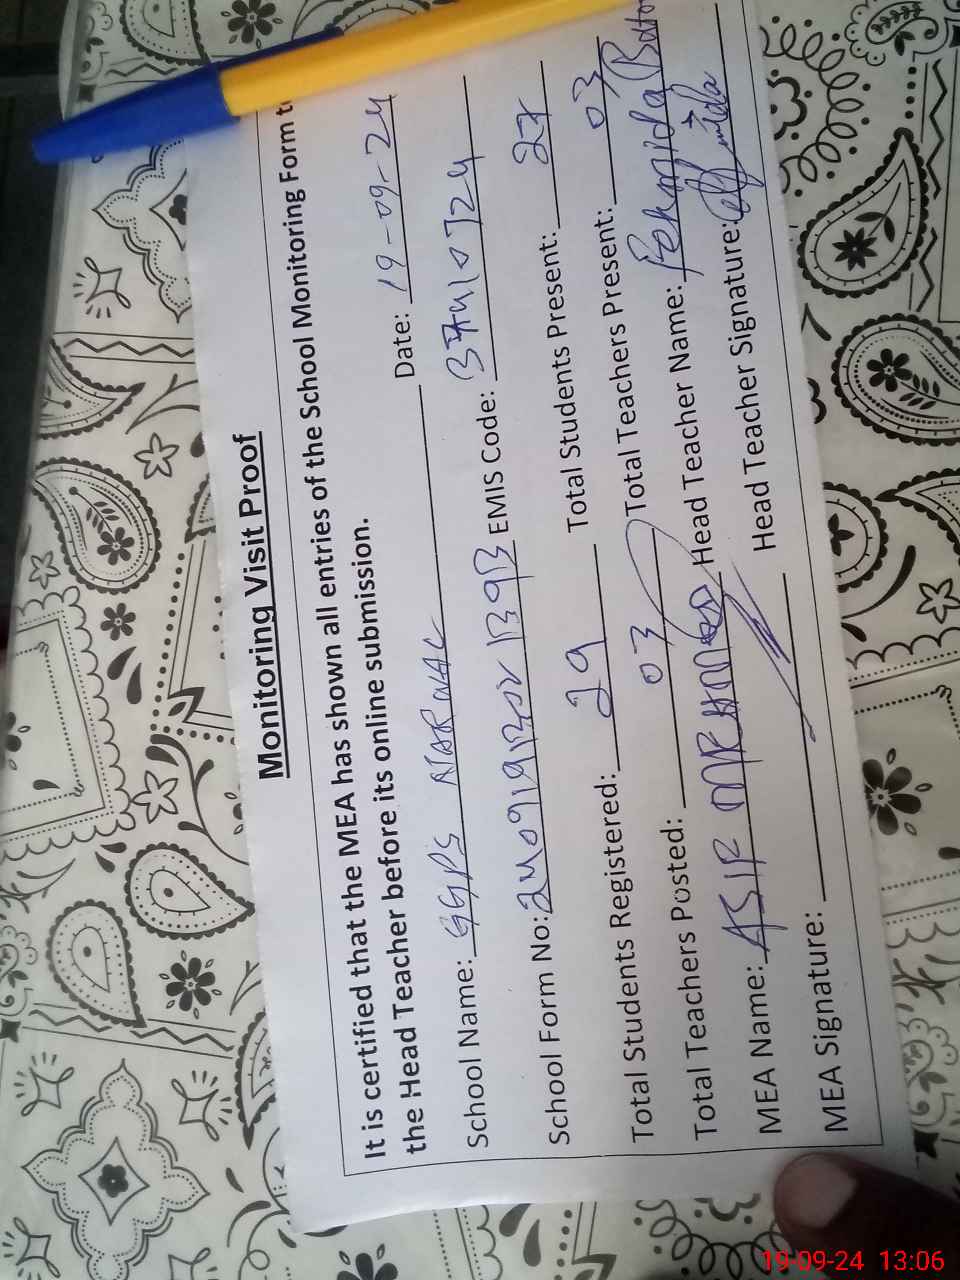 Monitoring Visit Proof
It is certified that the MEA has shown all entries of the School Monitoring Form t
the Head Teacher before its online submission.
School Name: GGPS Date: 19-09-24
School Form No: EMIS Code: 37410724
Total Students Registered: 29 Total Students Present: 27
Total Teachers Posted: 03 Total Teachers Present: 03
MEA Name: ASIF Head Teacher Name: Fehmida
MEA Signature: Head Teacher Signature:
19-09-24 13:06